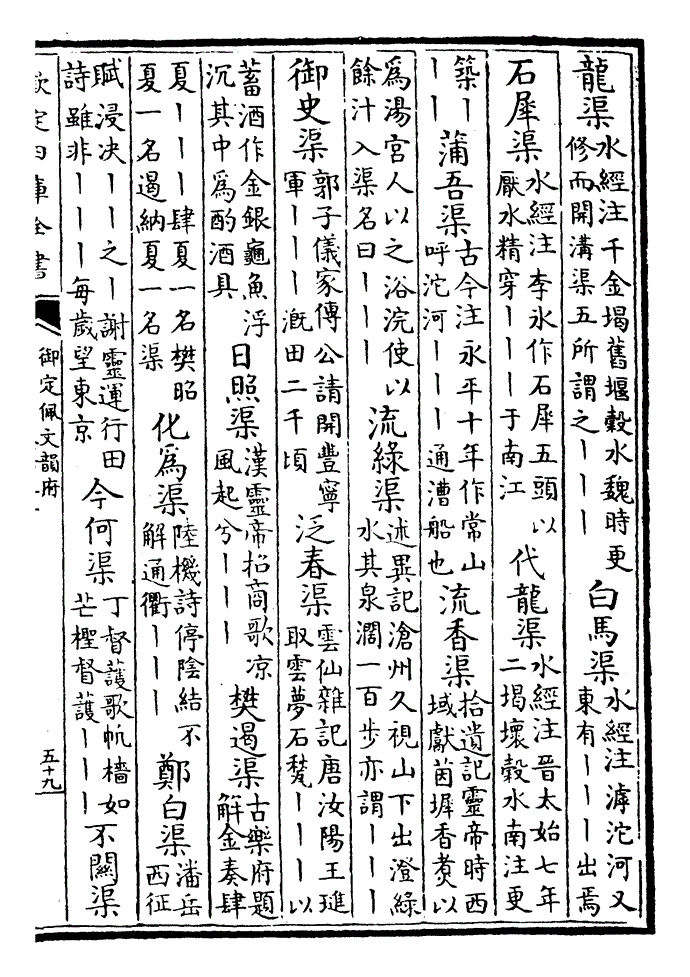 龍渠水經注千金堨舊堰穀水魏時更
修而開溝渠五所謂之丨丨丨
白馬渠水經注滹沱河又
東有丨丨丨出焉
石犀渠水經注李氷作石犀五頭以
厭水精穿丨丨丨于南江
代龍渠水經注晉太始七年
二堨壞穀水南注更
築丨
丨丨
蒲吾渠古今注永平十年作常山
呼沱河丨丨丨通漕船也
流香渠拾遺記靈帝時西
域獻茵墀香煑以
為湯宮人以之浴浣使以
餘汁入渠名曰丨丨丨
流綠渠述異記滄州久視山下出澄綠
水其泉濶一百步亦謂丨丨丨
御史渠郭子儀家傳公請開豐寧
軍丨丨丨溉田二千頃
泛春渠雲仙雜記唐汝陽王璡
取雲夢石甃丨丨丨以
蓄酒作金銀龜魚浮
沉其中為酌酒具
日照渠漢靈帝招商歌凉
風起兮丨丨丨
樊遏渠古樂府題
解金奏肆
夏丨丨丨肆夏一名樊昭
夏一名遏納夏一名渠
化為渠陸機詩停陰結不
解通衢丨丨丨
鄭白渠潘岳
西征
賦浸决丨丨之丨謝靈運行田
詩雖非丨丨丨每歲望東京
今何渠丁督護歌帆檣如
芒檉督護丨丨丨
不闗渠
欽定四庫全書
御定佩文韻府
五十九